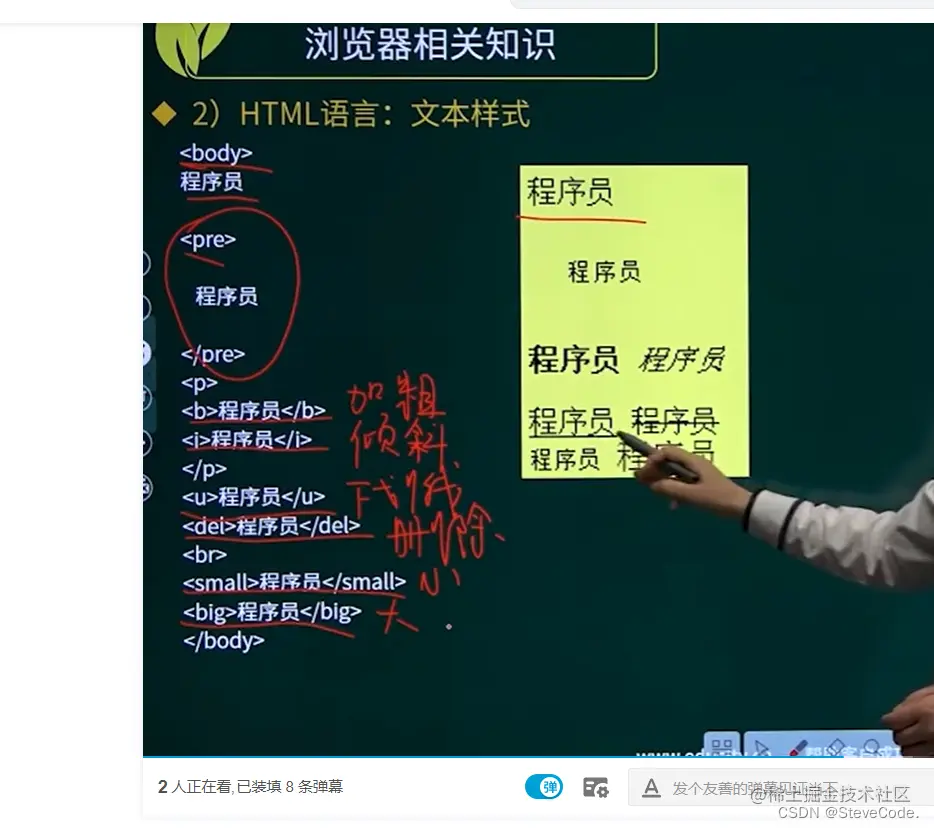 浏览器相关知识
2）HTML语言：文本样式
<body>
程序员
<pre>
程序员
</pre>
<p>
<b>程序员</b> 加粗
<i>程序员</i> 倾斜
</p>
<u>程序员</u> 下划线
<del>程序员</del> 删除
<br>
<small>程序员</small> 小
<big>程序员</big> 大
</body>
程序员
程序员
程序员 程序员
程序员 程序员
程序员 程序员
2 人正在看,已装填 8 条弹幕
弹
发个友善的弹幕见证当下
@稀土掘金技术社区
CSDN @SteveCode.